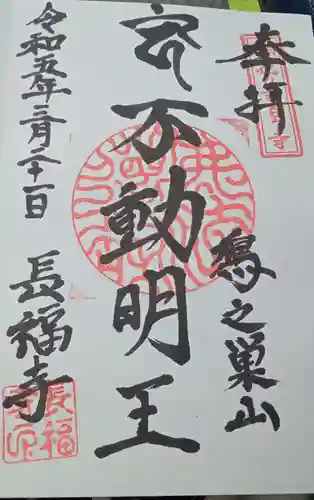 奉拝
之巣山
不動明王
令和五年三月二十一日
長福寺
長福寺印